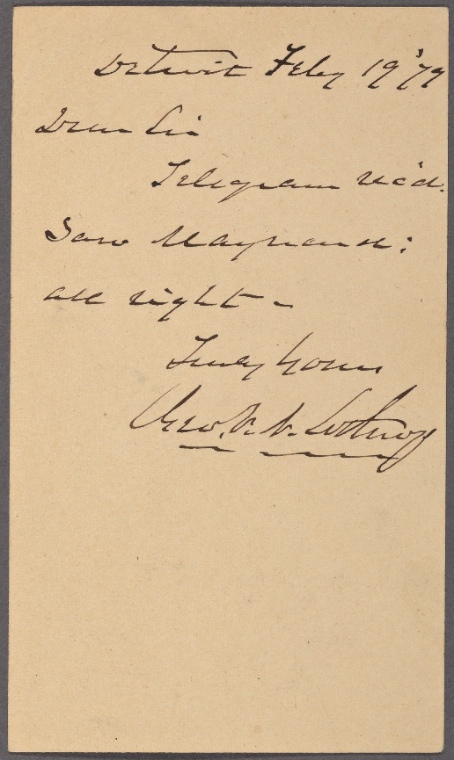 Detroit Feby 19 '79
Dear Sir
Telegram rec'd.
Saw Maynard:
all right -
Truly Yours
Geo. V. N. Lothrop